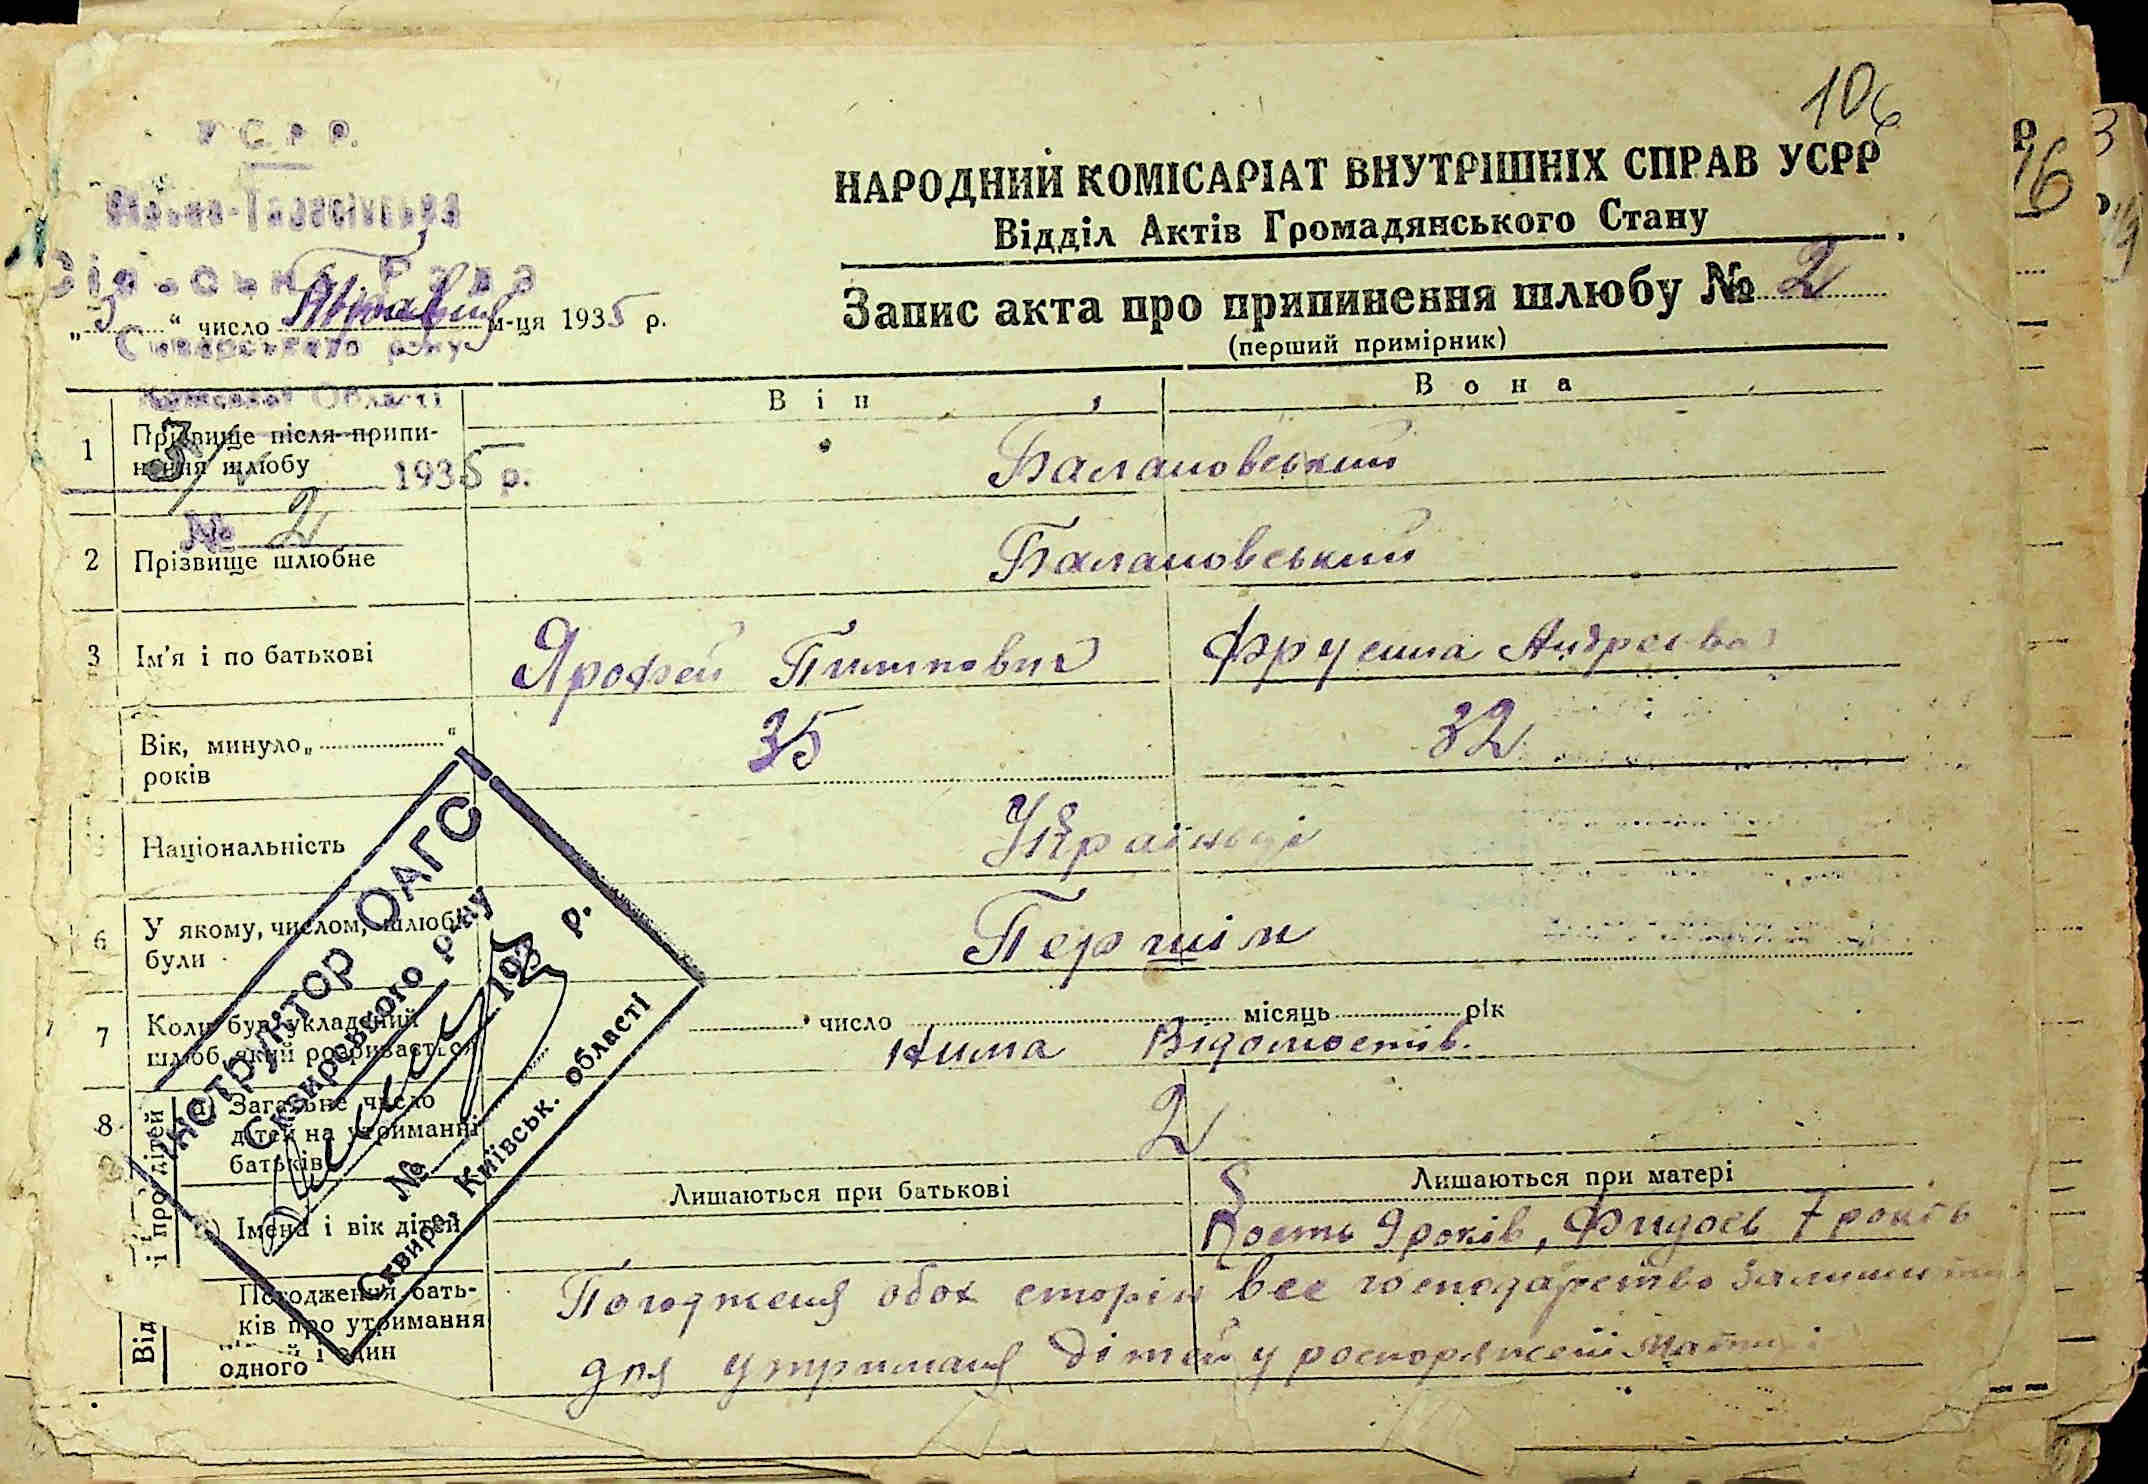 106
У С Р Р.
НАРОДНИЙ КОМІСАРІАТ ВНУТРІШНІХ СПРАВ УСРР
Відділ Актів Громадянського Стану
Запис акта про припинення шлюбу № 2
(перший примірник)
„3“ число м-ця 1935 р.
Сквирського р-ну
Київської Області
3/V 1935 р.
№ 2
Він Вона
1 Прізвище після припи-
нення шлюбу Балановський
2 Прізвище шлюбне Балановський
3 Ім'я і по батькові Ярофей Пилипович Фрусина Андреева
Вік, минуло „ “
років 35 32
Національність Українці
6 У якому, числом, шлюбі
були Першім
7 Коли був укладений
шлюб, який розривається число місяць рік
Нима Відомостів.
8 а) Загальне число
дітей на утриманні
батьків 2
і про дітей
Лишаються при батькові Лишаються при матері
Імена і вік дітей 9 років, Фидось 7 років
Погодження бать-
ків про утримання
одного і один
Від
Погодженя обох сторін все господарство залишити
для утриманя дітей у роспоряжені Матирі
Інструктор ОАГС
Сквирського р-ну
193 р.
№
Сквира, Київськ. області
16